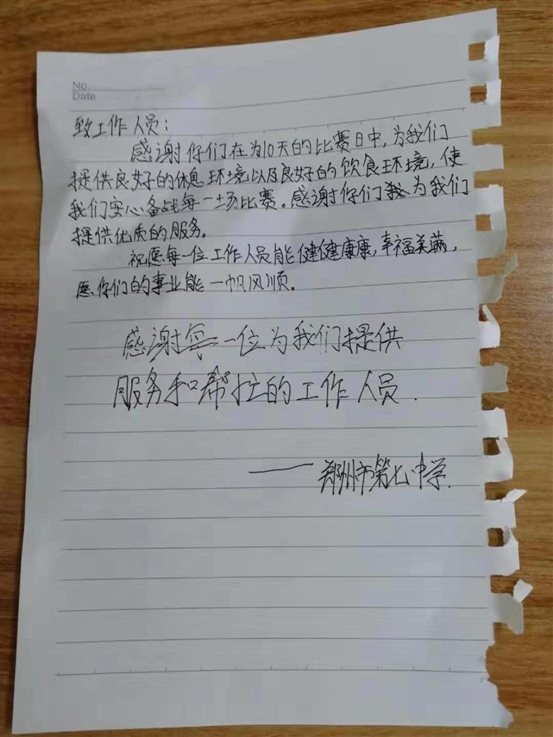 No.
Date
致工作人员：
感谢你们在为10天的比赛日中，为我们
提供良好的休息环境以及良好的饮食环境，使
我们安心备战每一场比赛。感谢你们为我们
提供优质的服务。
祝愿每一位工作人员能健健康康，幸福美满，
愿你们的事业能一帆风顺。
感谢每一位为我们提供
服务和帮忙的工作人员.
——郑州市第七中学.